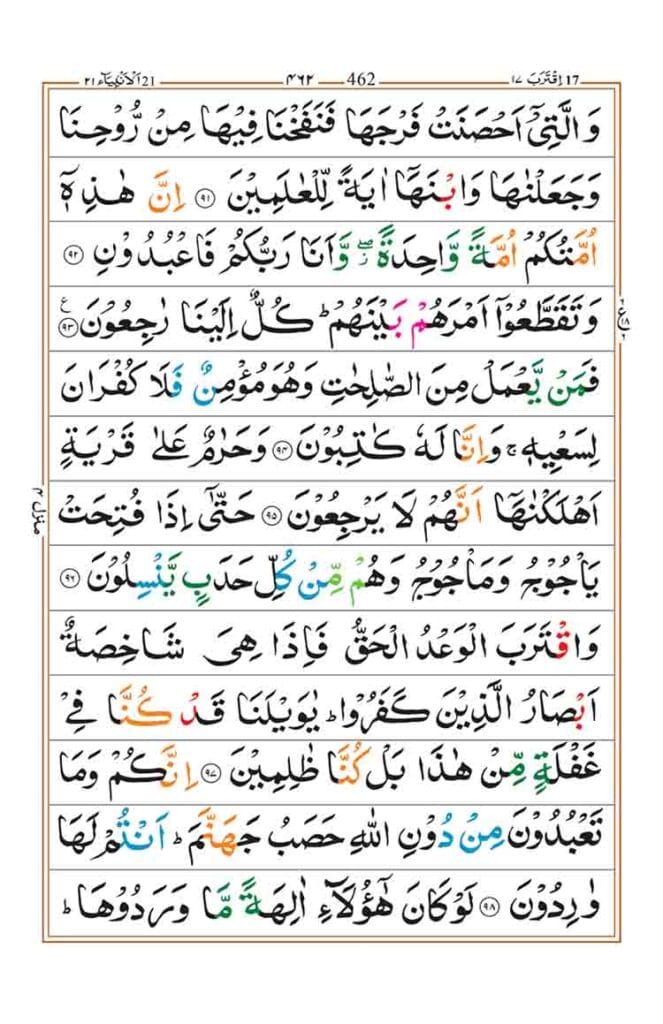 اِقْتَرَبَ ١٧ 17 462 ٤٦٢ اَلْاَنْبِيَآء ٢١ 21
وَ الَّتِیْۤ اَحْصَنَتْ فَرْجَهَا فَنَفَخْنَا فِیْهَا مِنْ رُّوْحِنَا
وَ جَعَلْنٰهَا وَ ابْنَهَاۤ اٰیَةً لِّلْعٰلَمِیْنَ ۝٩١ اِنَّ هٰذِهٖۤ
اُمَّتُكُمْ اُمَّةً وَّاحِدَةً ۖ٘ وَّ اَنَا رَبُّكُمْ فَاعْبُدُوْنِ ۝٩٢
وَ تَقَطَّعُوْۤا اَمْرَهُمْ بَیْنَهُمْ ؕ كُلٌّ اِلَیْنَا رٰجِعُوْنَ ۝٩٣ ع
فَمَنْ یَّعْمَلْ مِنَ الصّٰلِحٰتِ وَ هُوَ مُؤْمِنٌ فَلَا كُفْرَانَ
لِسَعْیِهٖ ۚ وَ اِنَّا لَهٗ كٰتِبُوْنَ ۝٩٤ وَ حَرٰمٌ عَلٰی قَرْیَةٍ
اَهْلَكْنٰهَاۤ اَنَّهُمْ لَا یَرْجِعُوْنَ ۝٩٥ حَتّٰۤی اِذَا فُتِحَتْ
یَاْجُوْجُ وَ مَاْجُوْجُ وَ هُمْ مِّنْ كُلِّ حَدَبٍ یَّنْسِلُوْنَ ۝٩٦
وَ اقْتَرَبَ الْوَعْدُ الْحَقُّ فَاِذَا هِیَ شَاخِصَةٌ
اَبْصَارُ الَّذِیْنَ كَفَرُوْا ؕ یٰوَیْلَنَا قَدْ كُنَّا فِیْ
غَفْلَةٍ مِّنْ هٰذَا بَلْ كُنَّا ظٰلِمِیْنَ ۝٩٧ اِنَّكُمْ وَ مَا
تَعْبُدُوْنَ مِنْ دُوْنِ اللّٰهِ حَصَبُ جَهَنَّمَ ؕ اَنْتُمْ لَهَا
وٰرِدُوْنَ ۝٩٨ لَوْ كَانَ هٰۤؤُلَآءِ اٰلِهَةً مَّا وَرَدُوْهَا ؕ
منزل ٤